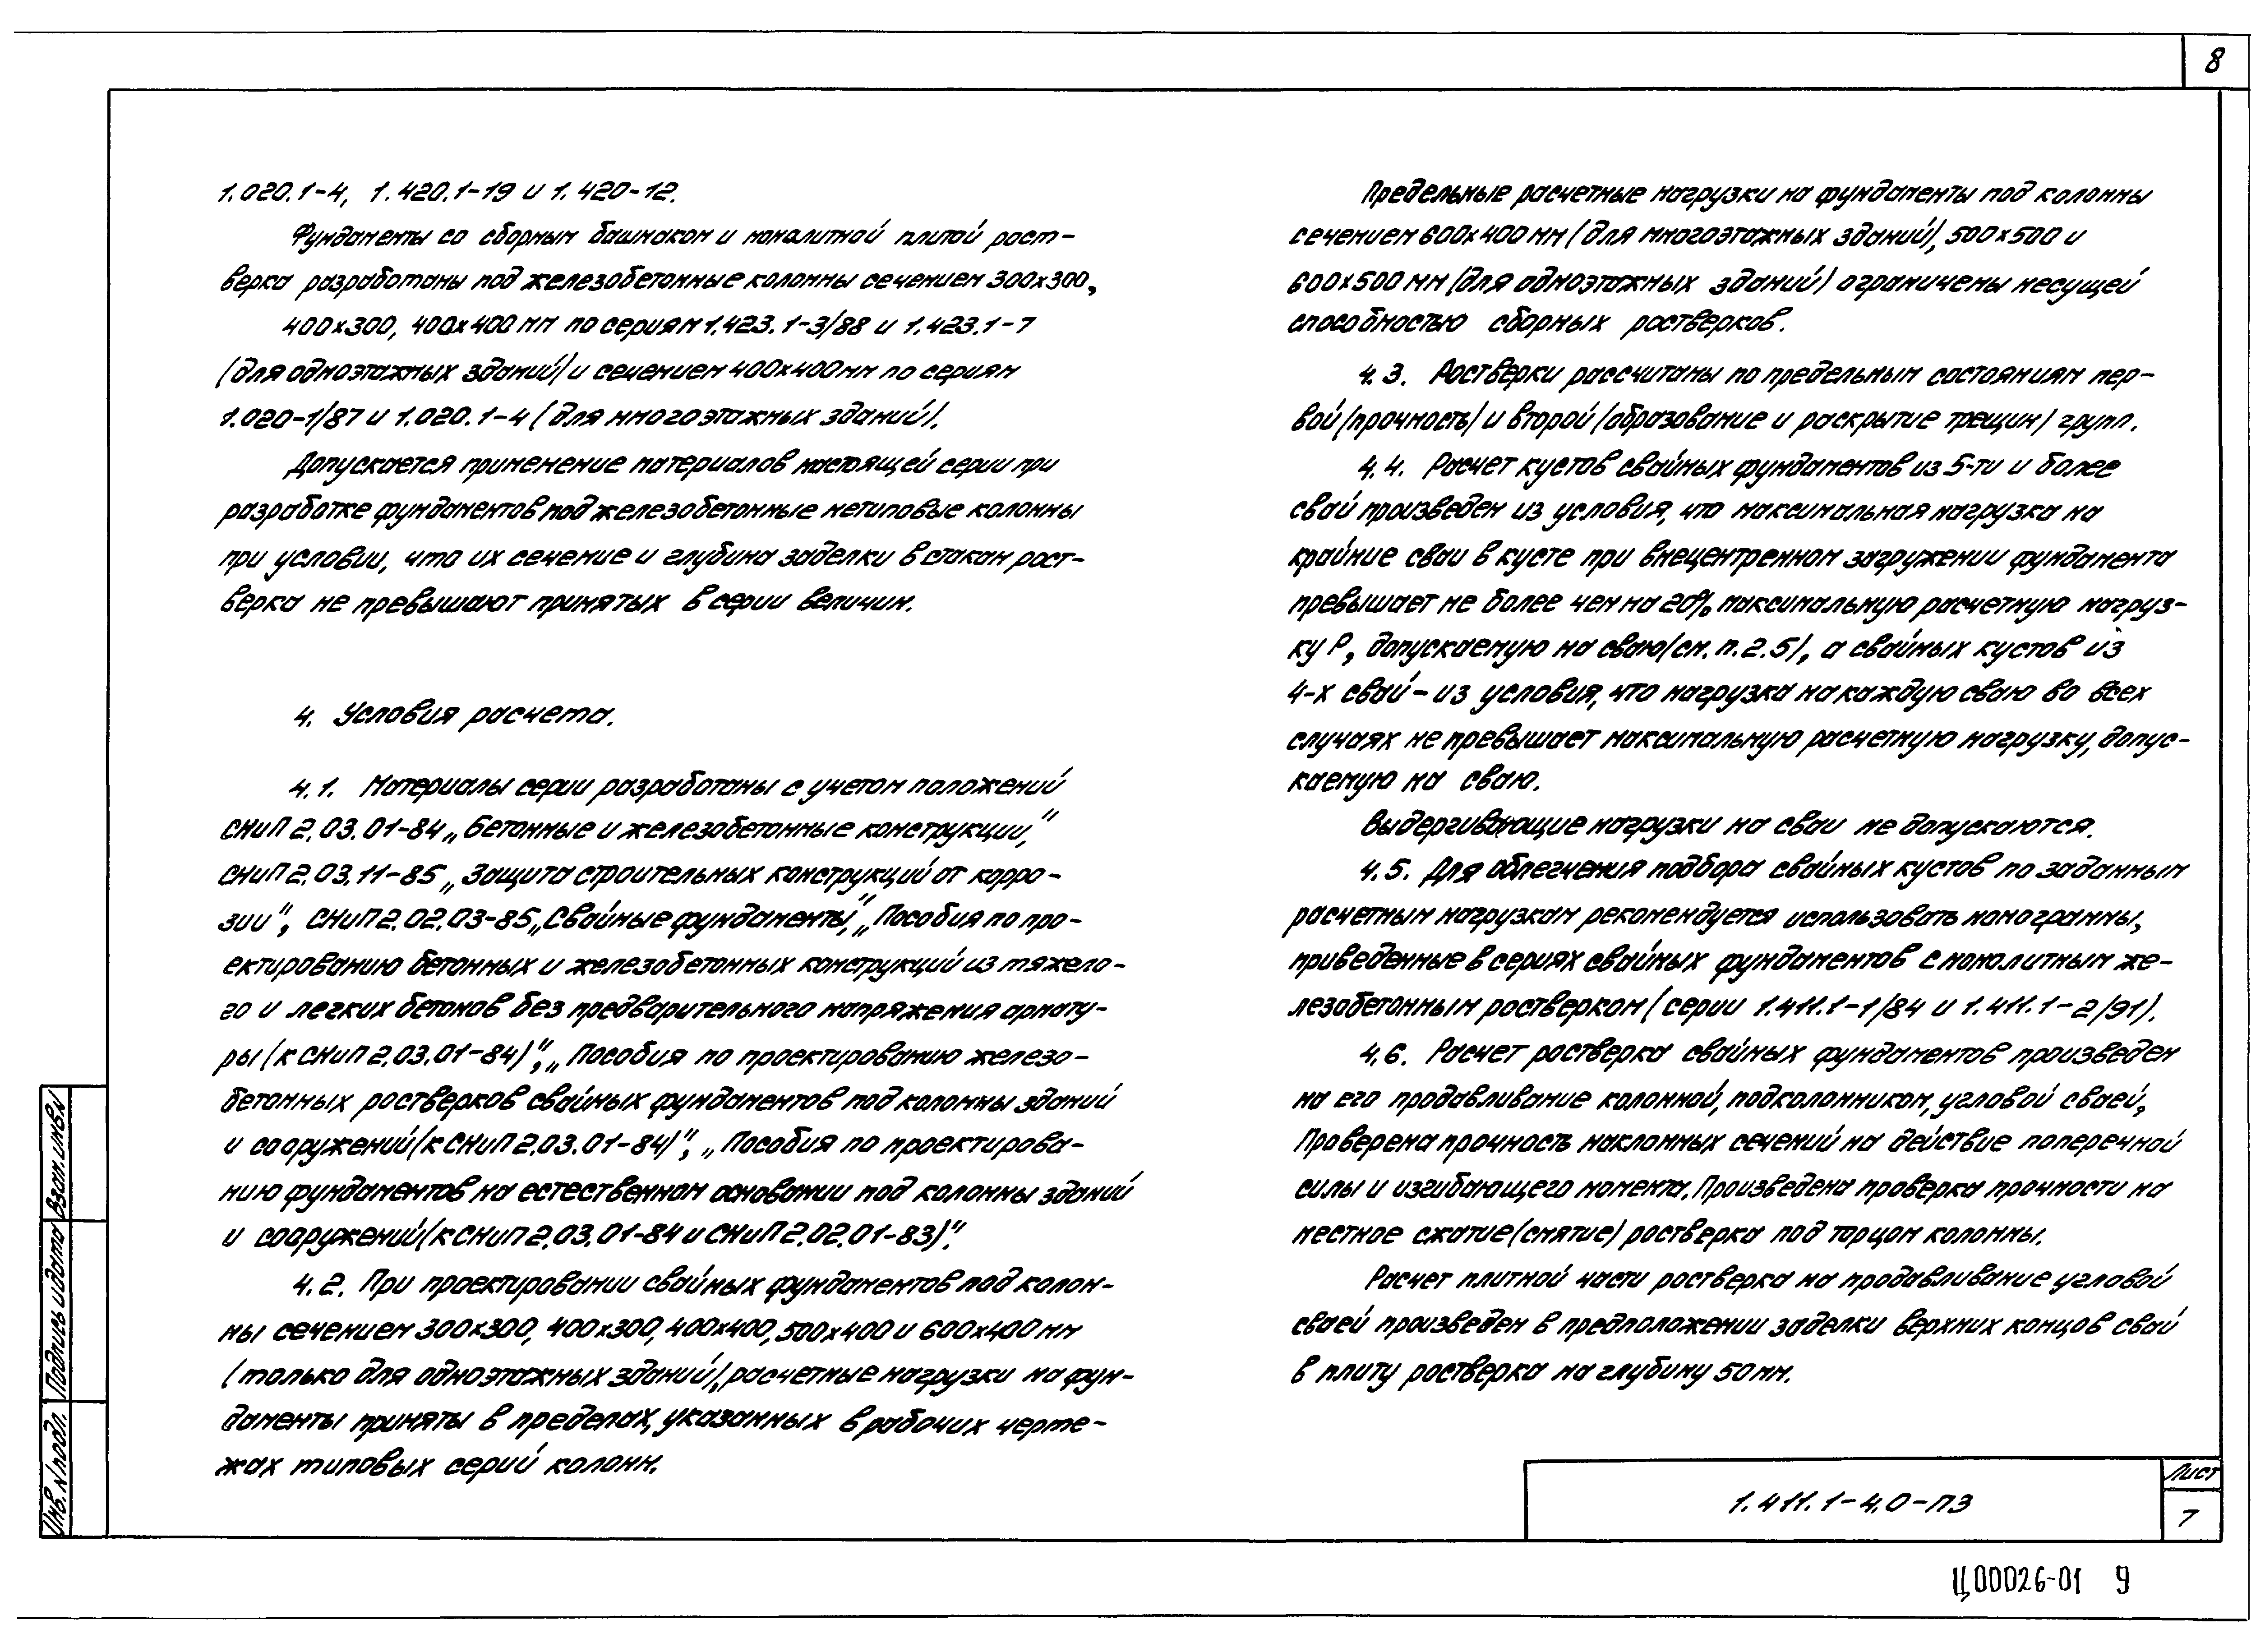 8
1.020.1-4, 1.420.1-19 и 1.420-12.
Фундаменты со сборным башмаком и монолитной плитой рост-
верка разработаны под железобетонные колонны сечением 300х300,
400х300, 400х400 мм по сериям 1.423.1-3/88 и 1.423.1-7
(для одноэтажных зданий) и сечением 400х400мм по сериям
1.020-1/87 и 1.020.1-4 (для многоэтажных зданий).
Допускается применение материалов настоящей серии при
разработке фундаментов под железобетонные нетиповые колонны
при условии, что их сечение и глубина заделки в стакан рост-
верка не превышают принятых в серии величин.
4. Условия расчета.
4.1. Материалы серии разработаны с учетом положений
СНиП 2.03.01-84 „Бетонные и железобетонные конструкции,"
СНиП 2.03.11-85 „Защита строительных конструкций от корро-
зии", СНиП 2.02.03-85 „Свайные фундаменты", „Пособия по про-
ектированию бетонных и железобетонных конструкций из тяжело-
го и легких бетонов без предварительного напряжения армату-
ры (к СНиП 2.03.01-84)", „Пособия по проектированию железо-
бетонных ростверков свайных фундаментов под колонны зданий
и сооружений (к СНиП 2.03.01-84)", „Пособия по проектирова-
нию фундаментов на естественном основании под колонны зданий
и сооружений (к СНиП 2.03.01-84 и СНиП 2.02.01-83)".
4.2. При проектировании свайных фундаментов под колон-
ны сечением 300х300, 400х300, 400х400, 500х400 и 600х400 мм
(только для одноэтажных зданий), расчетные нагрузки на фун-
даменты приняты в пределах, указанных в рабочих черте-
жах типовых серий колонн.
Предельные расчетные нагрузки на фундаменты под колонны
сечением 600х400 мм (для многоэтажных зданий), 500х500 и
600х500 мм (для одноэтажных зданий) ограничены несущей
способностью сборных ростверков.
4.3. Ростверки рассчитаны по предельным состояниям пер-
вой (прочность) и второй (образование и раскрытие трещин) групп.
4.4. Расчет кустов свайных фундаментов из 5-ти и более
свай произведен из условия, что максимальная нагрузка на
крайние сваи в кусте при внецентренном загружении фундамента
превышает не более чем на 20% максимальную расчетную нагруз-
ку Р, допускаемую на сваю (см. п. 2.5), а свайных кустов из
4-х свай - из условия, что нагрузка на каждую сваю во всех
случаях не превышает максимальную расчетную нагрузку, допус-
каемую на сваю.
Выдергивающие нагрузки на сваи не допускаются.
4.5. Для облегчения подбора свайных кустов по заданным
расчетным нагрузкам рекомендуется использовать номограммы,
приведенные в сериях свайных фундаментов с монолитным же-
лезобетонным ростверком (серии 1.411.1-1/84 и 1.411.1-2/91).
4.6. Расчет ростверка свайных фундаментов произведен
на его продавливание колонной, подколонником, угловой сваей,
Проверена прочность наклонных сечений на действие поперечной
силы и изгибающего момента. Произведена проверка прочности на
местное сжатие (смятие) ростверка под торцом колонны.
Расчет плитной части ростверка на продавливание угловой
сваей произведен в предположении заделки верхних концов свай
в плиту ростверка на глубину 50 мм.
Инв. N подл.
Подпись и дата
Взам. инв. N
1.411.1-4.0-ПЗ
Лист
7
Ц00026-01 9